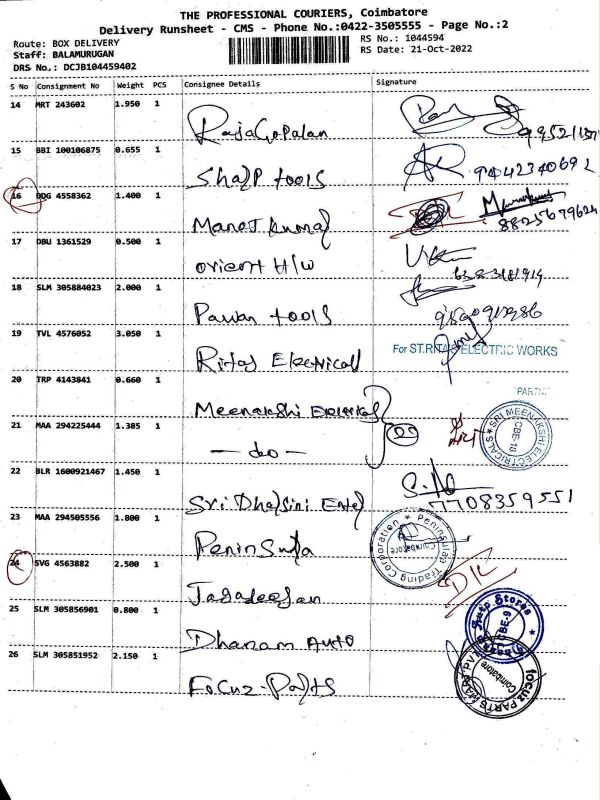 THE PROFESSIONAL COURIERS, Coimbatore
Delivery Runsheet - CMS - Phone No.:0422-3505555 - Page No.:2
Route: BOX DELIVERY
RS No.: 1044594
Staff: BALAMURUGAN
RS Date: 21-Oct-2022
DRS No.: DCJB104459402
S No Consignment No Weight PCS Consignee Details Signature
14 MRT 243602 1.950 1
RajaGopalan
15 BBI 100106875 0.655 1
Sharp tools
9442340692
16 DDG 4558362 1.400 1
Manoj kumar
8825679624
17 DBU 1361529 0.500 1
orient H/w
18 SLM 305884023 2.000 1
Pawan tools
19 TVL 4576052 3.050 1
For ST.RITAS ELECTRIC WORKS
Ritas Electrical
20 TRP 4143841 0.660 1
Meenakshi Electrical
21 MAA 294225444 1.385 1
SRI MEENAKSHI ELECTRICALS
CBE-18
- do -
22 BLR 1600921467 1.450 1
Sri Dharsini Enter
7708359551
23 MAA 294505556 1.800 1
Peninsular Trading Corporation
Coimbatore
Peninsula
24 SVG 4563882 2.500 1
Jagadeesan
25 SLM 305856901 0.800 1
Auto Stores
CBE-9
Dhanam Auto
26 SLM 305851952 2.150 1
focuz PARTS
Coimbatore
Focuz Parts